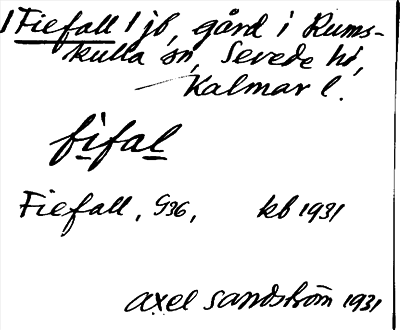 /Fiefall/ jb, gård i Rums-
kulla sn, Sevede hd,
Kalmar l.
fifal
Fiefall, G36, kb 1931
Axel Sandström 1931